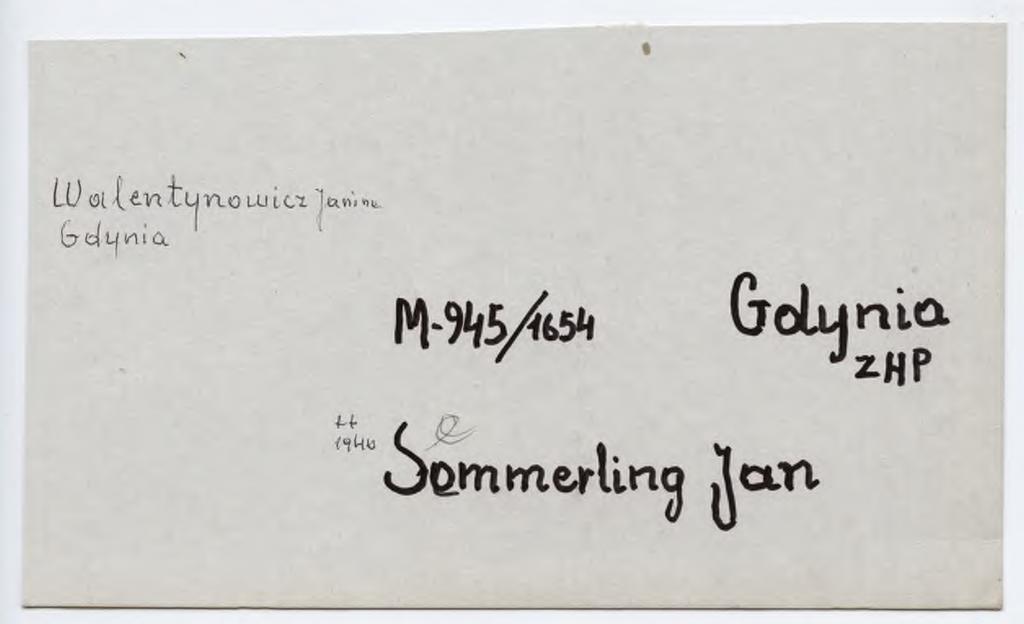 Walentynowicz Janina
Gdynia
M-945/1654
Gdynia
ZHP
++
1940
e
Sommerling Jan